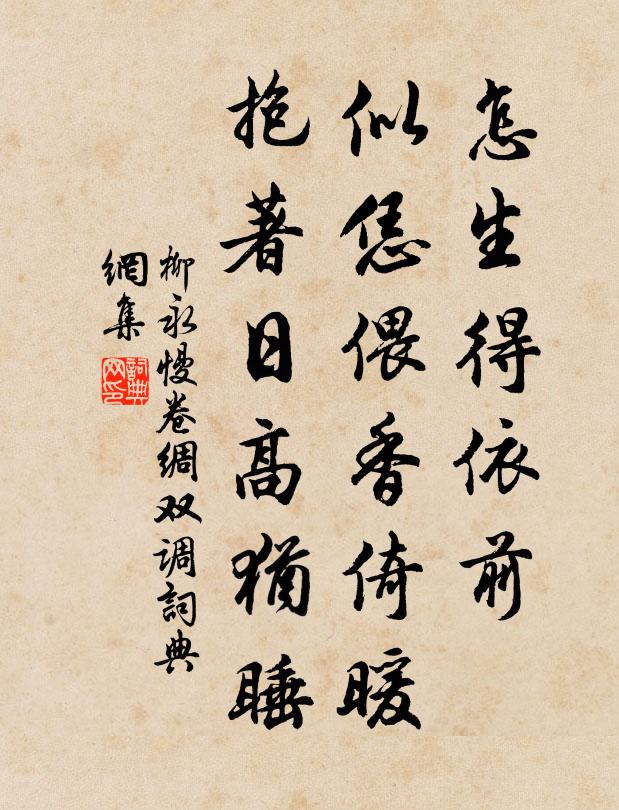 怎生得依前
似恁偎香倚暖
抱著日高猶睡
柳永慢卷綢双调詞典
網集
詞典
网印